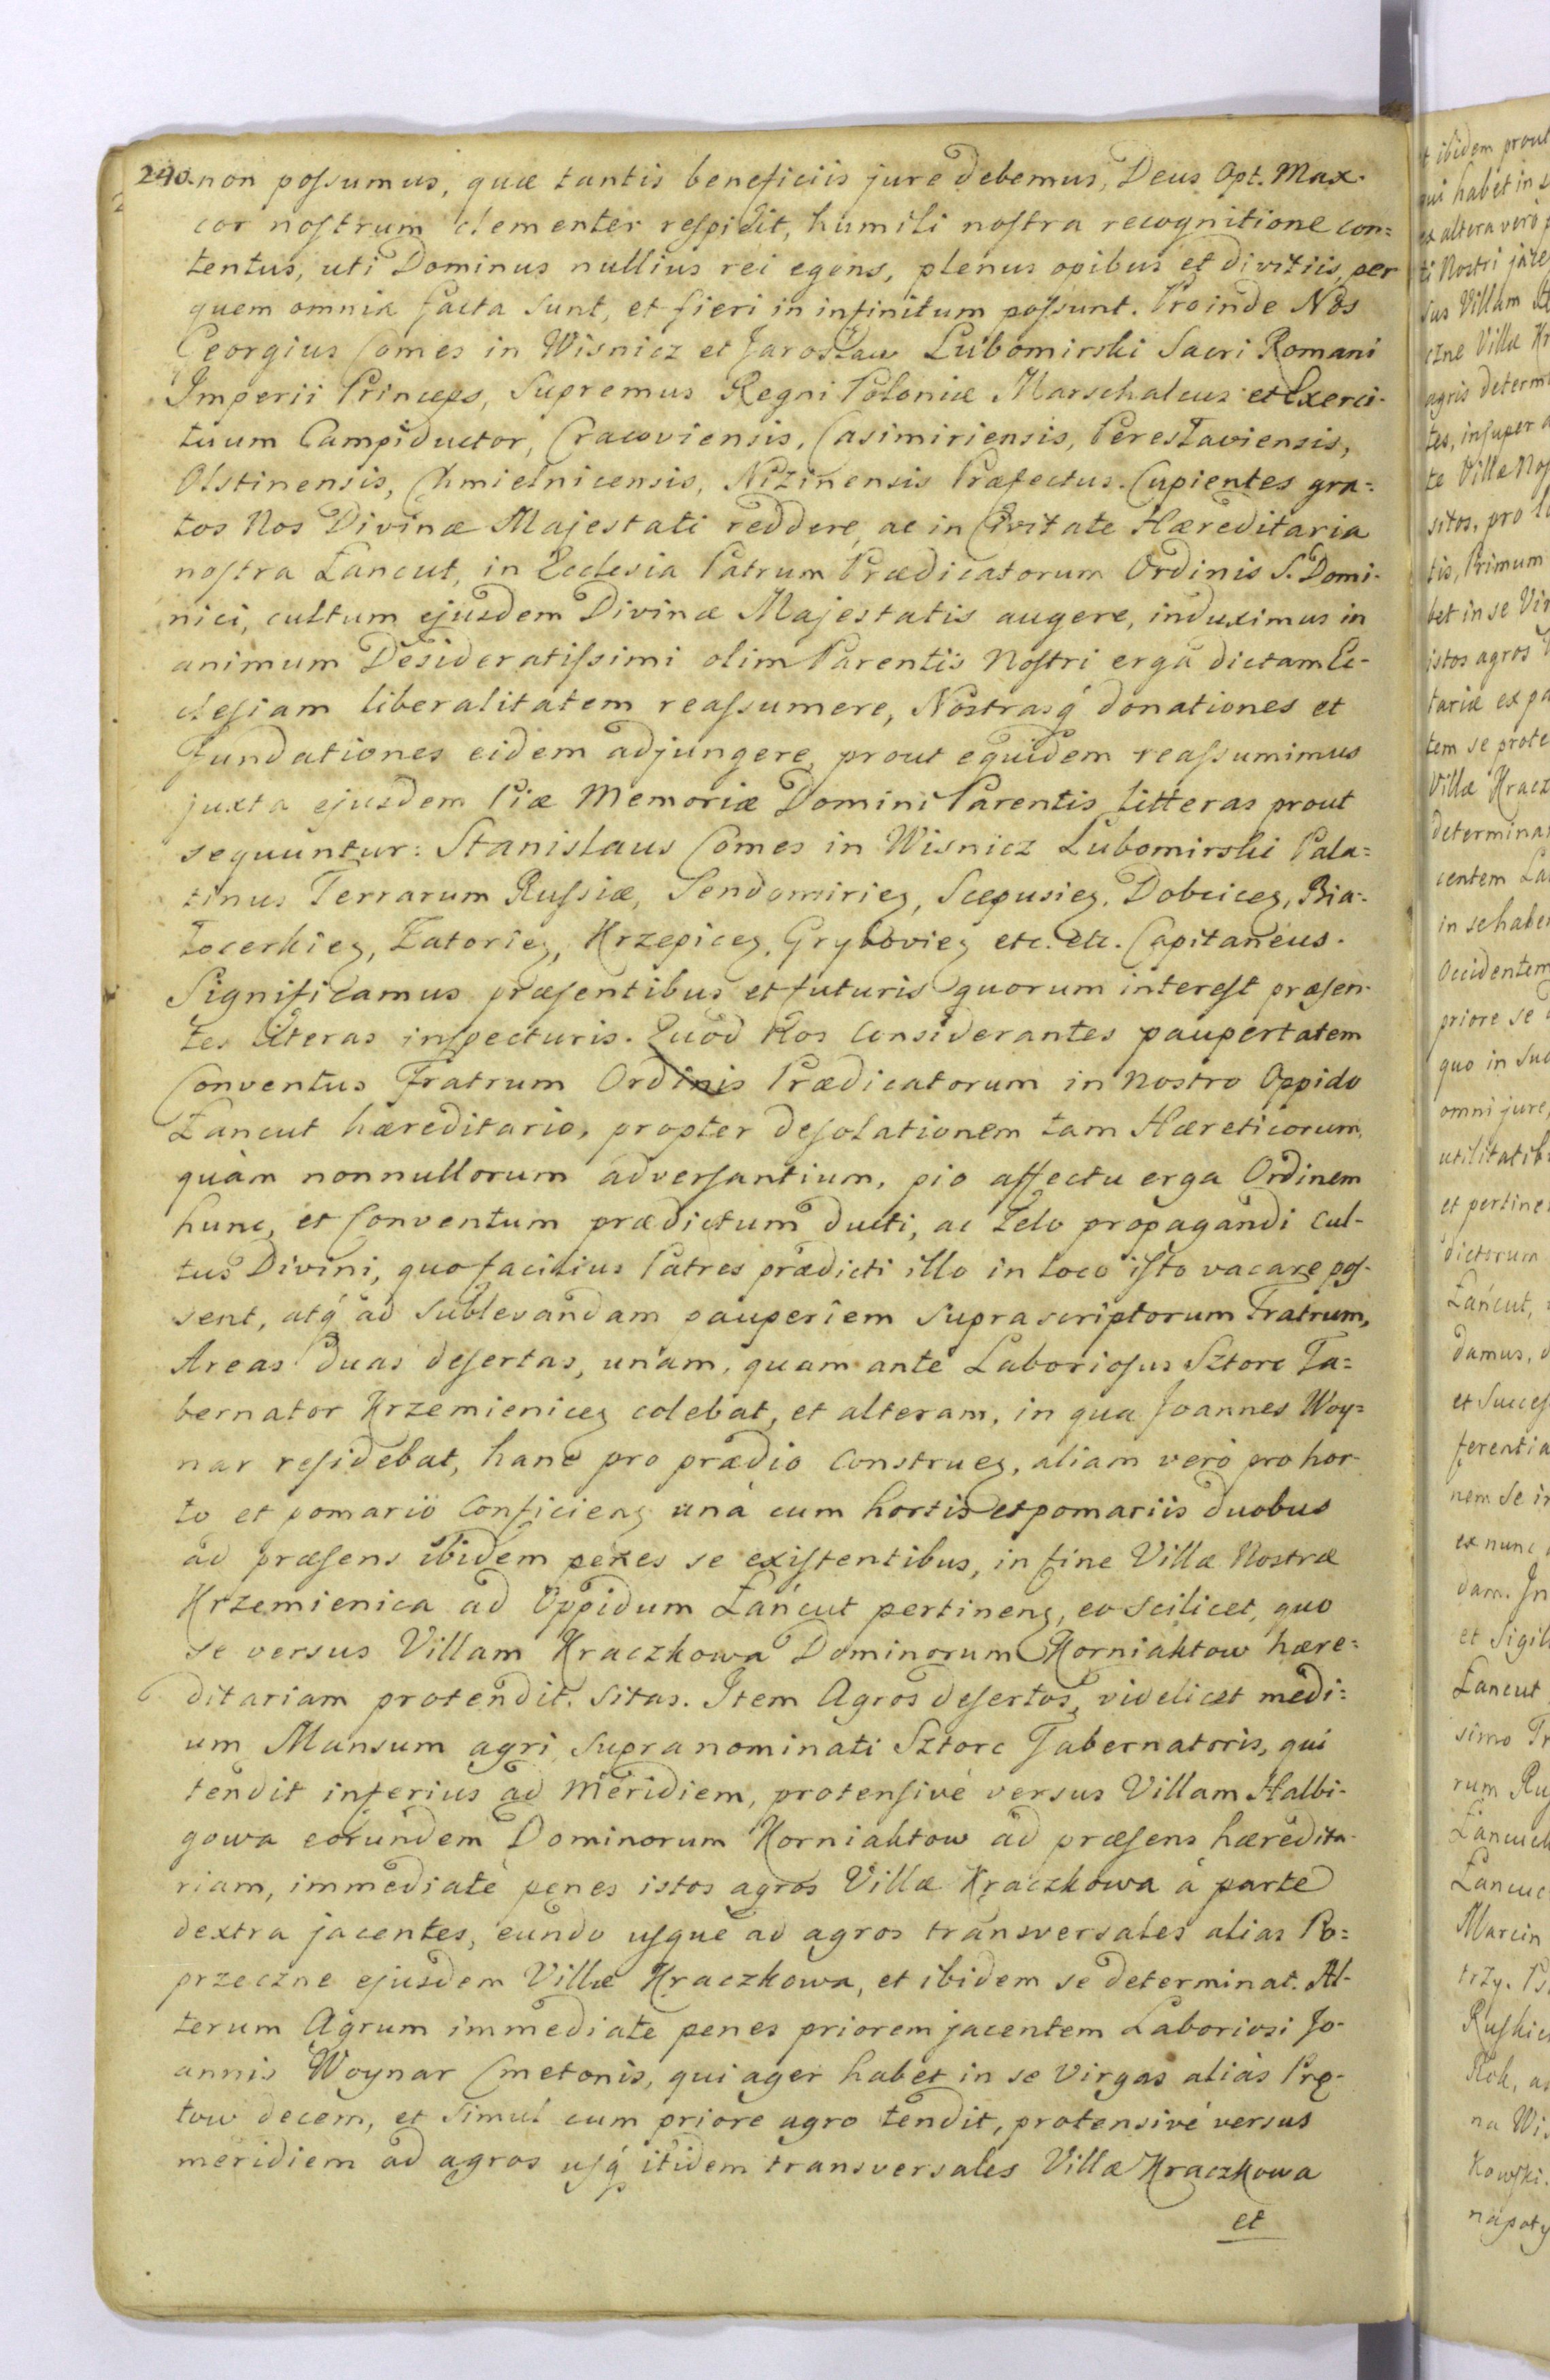 240. non possumus, quæ tantis beneficiis jure debemus, Deus Opt. Max.
cor nostrum clementer respicit, humili nostra recognitione con=
tentus, uti Dominus nullius rei egens, plenus opibus et divitiis, per
quem omnia facta sunt, et fieri in infinitum possunt. Proinde Nos
Georgius Comes in Wisnicz et Jarosław Lubomirski Sacri Romani
Imperii Princeps, Supremus Regni Poloniæ Marschalcus et Exerci-
tuum Campiductor, Cracoviensis, Casimiriensis, Peresłaviensis,
Olstinensis, Chmielnicensis, Nizinensis Præfectus. Cupientes gra=
tos Nos Divinæ Majestati reddere, ac in Civitate Hæreditaria
nostra Łancut, in Ecclesia Patrum Prædicatorum Ordinis S. Domi-
nici, cultum ejusdem Divinæ Majestatis augere, induximus in
animum Desideratissimi olim Parentis Nostri erga dictam Ec-
clesiam liberalitatem reassumere, Nostrasq́ donationes et
fundationes eidem adjungere, prout equidem reassumimus
juxta ejusdem Piæ Memoriæ Domini Parentis litteras prout
sequuntur: Stanislaus Comes in Wisnicz Lubomirski Pala=
tinus Terrarum Russiæ, Sendomirieȝ, Scepusieȝ, Dobciceȝ, Bia-
łocerkieȝ, Zatorieȝ, Krzepiceȝ, Grybovieȝ etc. etc. Capitaneus.
Significamus præsentibus et futuris quorum interest præsen-
tes literas inspecturis. Quod Nos Considerantes paupertatem
Conventus Fratrum Ordinis Prædicatorum in Nostro Oppido
Łancut hæreditario, propter desolationem tam Hæreticorum,
quàm nonnullorum adversantium, pio affectu erga Ordinem
hunc, et Conventum prædictum ducti, ac Zelo propagandi Cul-
tus Divini, quo facilius Patres prædicti illo in loco isto vacare pos-
sent, atq́ ad sublevandam pauperiem suprascriptorum Fratrum,
Areas duas desertas, unam, quam ante Laboriosus Sztorc Ta=
bernator Krzemieniceȝ colebat, et alteram, in qua Joannes Woy=
nar residebat, hanc pro prædio Construeȝ, aliam verò pro hor-
to et pomario Conficienȝ unà cum hortis et pomariis duobus
ad præsens ibidem penes se existentibus, in fine Villæ Nostræ
Krzemienica ad Oppidum Łańcut pertinenȝ, eo scilicet, quo
se versus Villam Kraczkowa Dominorum Korniaktow hære=
ditariam protendit. sitas. Item Agros desertos, videlicet medi=
um Mansum agri supra nominati Sztorc Tabernatoris, qui
tendit inferius ad Meridiem, protensivè versus Villam Halbi-
gowa eorundem Dominorum Korniaktow ad præsens hæredita-
riam, immediatè penes istos agros Villæ Kraczkowa à parte
dextra jacentes, eundo usque ad agros transversales alias Po=
przeczne ejusdem Villæ Kraczkowa, et ibidem se determinat. Al-
terum Agrum immediate penes priorem jacentem Laboriosi Jo-
annis Woynar Cmetonis, qui ager habet in se Virgas aliàs Prę-
tow decem, et simul cum priore agro tendit, protensivè versus
meridiem ad agros usq́ itidem transversales Villæ Kraczkowa
et